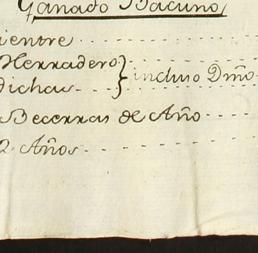 Ganado Bacuno,
ientre
Herradero } incluso Dmõ
dichas
Becerras de Año
2 Años